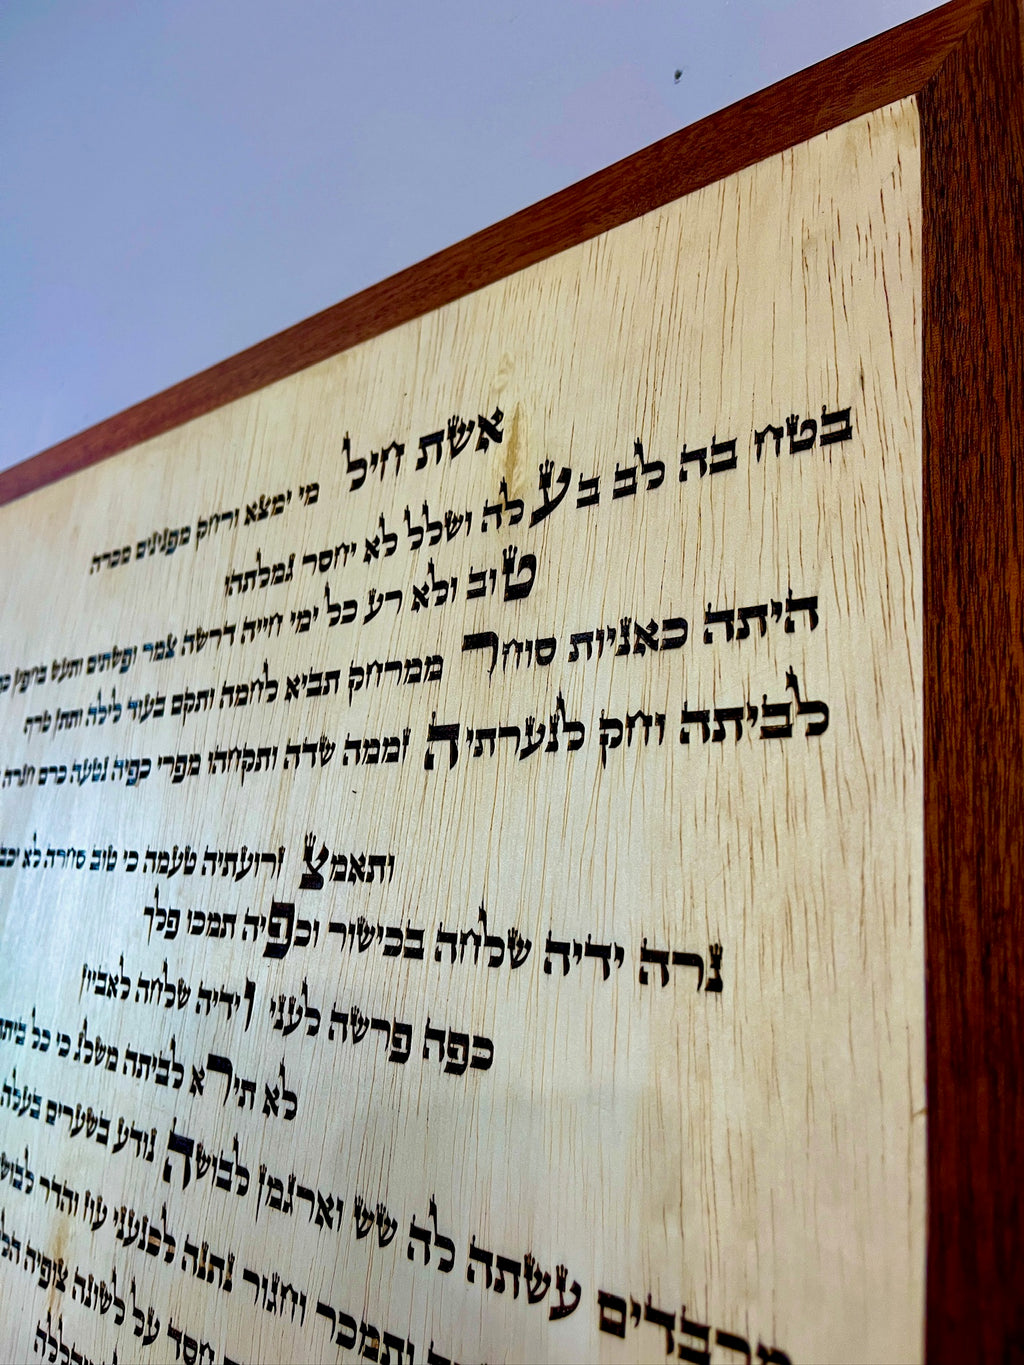 אשת חיל מי ימצא ורחק מפנינים מכרה
בטח בה לב בעלה ושלל לא יחסר גמלתהו
טוב ולא רע כל ימי חייה דרשה צמר ופשתים ותעש בחפץ
היתה כאניות סוחר ממרחק תביא לחמה ותקם בעוד לילה ותתן טרף
לביתה וחק לנערתיה זממה שדה ותקחהו מפרי כפיה נטעה כרם חגרה
ותאמצ זרועתיה טעמה כי טוב סחרה לא
נרה ידיה שלחה בכישור וכפיה תמכו פלך
כפה פרשה לעני וידיה שלחה לאביון
לא תירא לביתה משלג כי כל
מרבדים עשתה לה שש וארגמן לבושה נודע בשערים בעלה
ותמכר וחגור נתנה לכנעני עוז והדר
חסד על לשונה צופיה